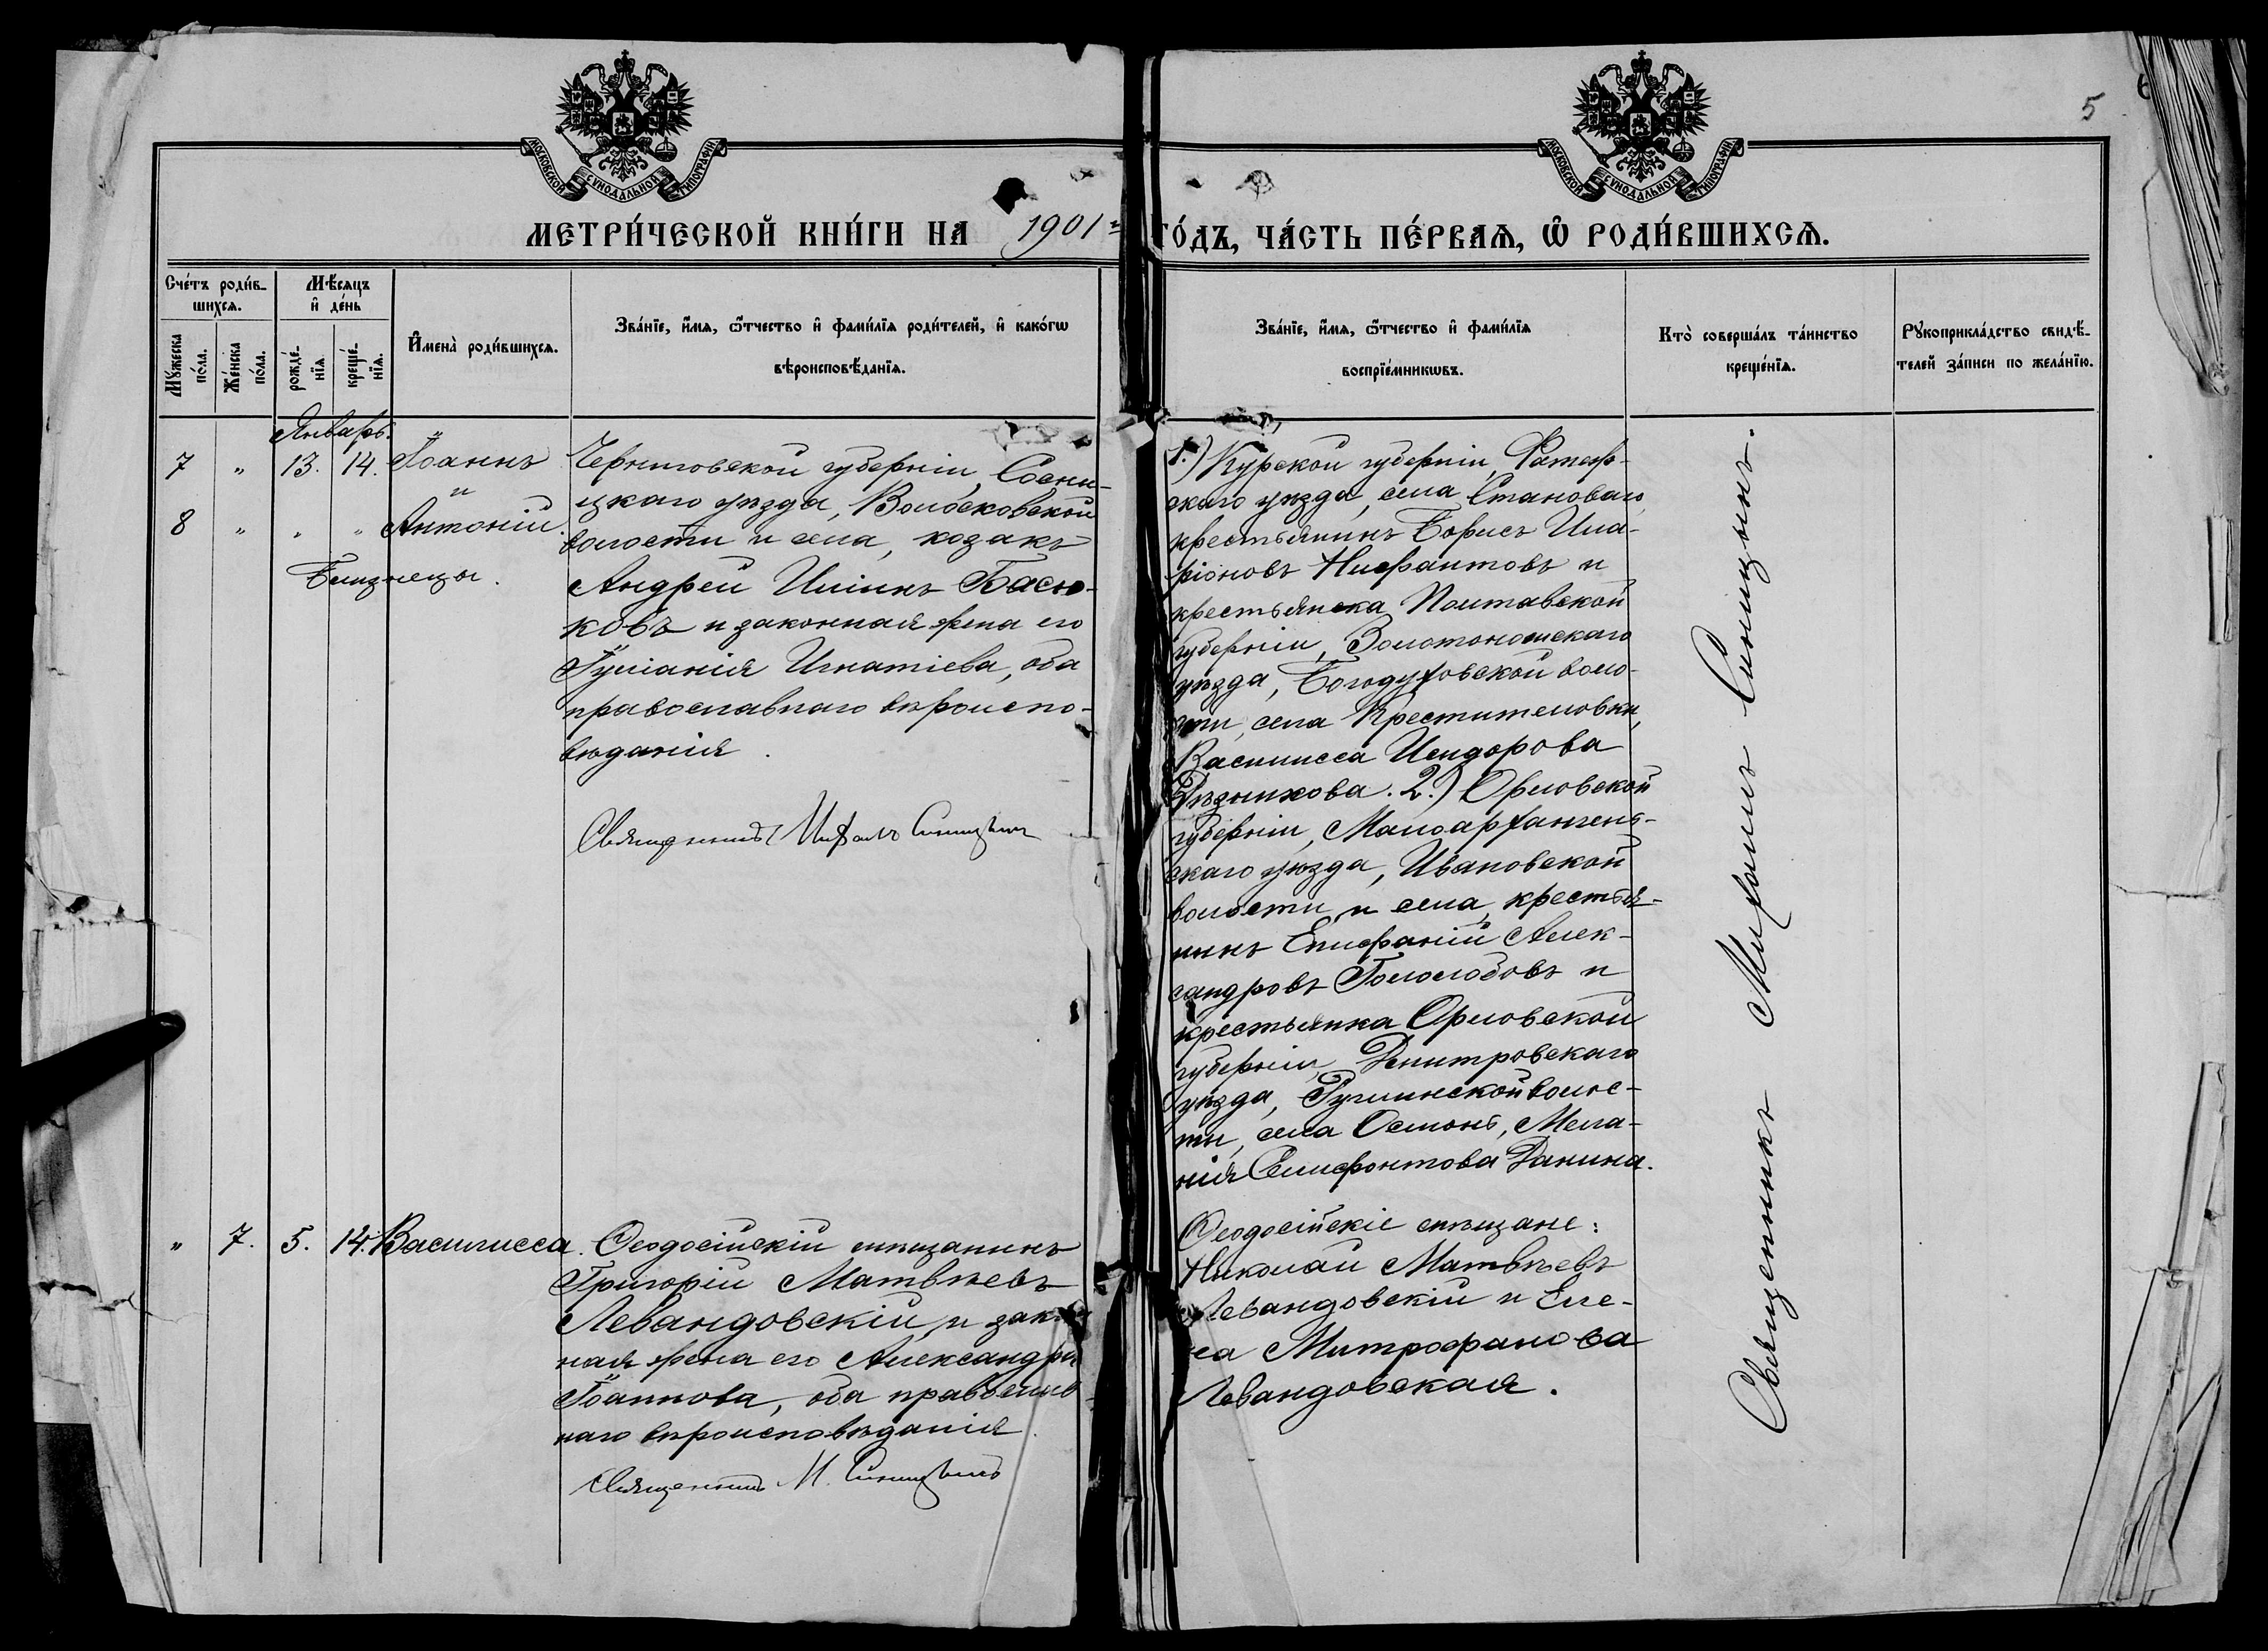 5
МОСКОВСКОЙ СѴНОДАЛЬНОЙ ТИПОГРАФІИ
МОСКОВСКОЙ СѴНОДАЛЬНОЙ ТИПОГРАФІИ
МЕТРИ́ЧЕСКОЙ КНИ́ГИ НА 1901 ГО́ДЪ, ЧА́СТЬ ПЕ́РВАѦ, Ѡ҆ РОДИ́ВШИХСѦ.
Сче́тъ роди́в-
шихсѧ.
Мꙋ́жеска по́ла.
Же́нска по́ла.
Мѣ́сяцъ
и҆ де́нь
рожде́-
нїѧ.
креще́-
нїѧ.
И҆мена̀ роди́вшихсѧ.
Зва́нїе, и҆́мѧ, ѻ҆́тчество и҆ фами́лїѧ роди́телей, и҆ како́гѡ
вѣроисповѣ́данїѧ.
Зва́нїе, и҆́мѧ, ѻ҆́тчество и҆ фами́лїѧ
воспрїе́мникѡвъ.
Кто̀ соверша́лъ та́инство
креще́нїѧ.
Рꙋкоприкла́дство свидѣ́-
телей за́писи по жела́нїю.
Январь.
7 " 13. 14. Іоаннъ
и
8 " " " Антоній.
Близнецы.
Черниговской губерніи, Сосни-
цкаго уѣзда, Волосковской
волости и села, козакъ
Андрей Иліинъ Басю-
ковъ и законная жена его
Іуліанія Игнатіева, оба
православнаго вѣроиспо-
вѣданія.
Священникъ Михаилъ Синицынъ
1.) Курской губерніи, Фатеж-
скаго уѣзда, села Становаго,
крестьянинъ Борисъ Ила-
ріоновъ Нифантовъ и
крестьянка Полтавской
губерніи, Золотоношскаго
уѣзда, Богодуховской воло-
сти, села Крестителовки,
Василисса Исидорова
Рѣзникова. 2.) Орловской
губерніи, Малоархангель-
скаго уѣзда, Ивановской
волости и села, крестья-
нинъ Епифаній Алек-
сандровъ Гололобовъ и
крестьянка Орловской
губерніи, Дмитровскаго
уѣзда, волос-
ти, села Осмонь, Мела-
нія Данина.
Священникъ Михаилъ Синицынъ.
" 7. 5. 14. Василисса.
Ѳеодосійскій мѣщанинъ
Григорій Матвѣевъ
Левандовскій и закон
ная жена его Александра
Іоаннова, оба православ
наго вѣроисповѣданія.
Священникъ М. Синицынъ
Ѳеодосійскіе мѣщане:
Николай Матвѣевъ
Левандовскій и Еле-
на Митрофанова
Левандовская.